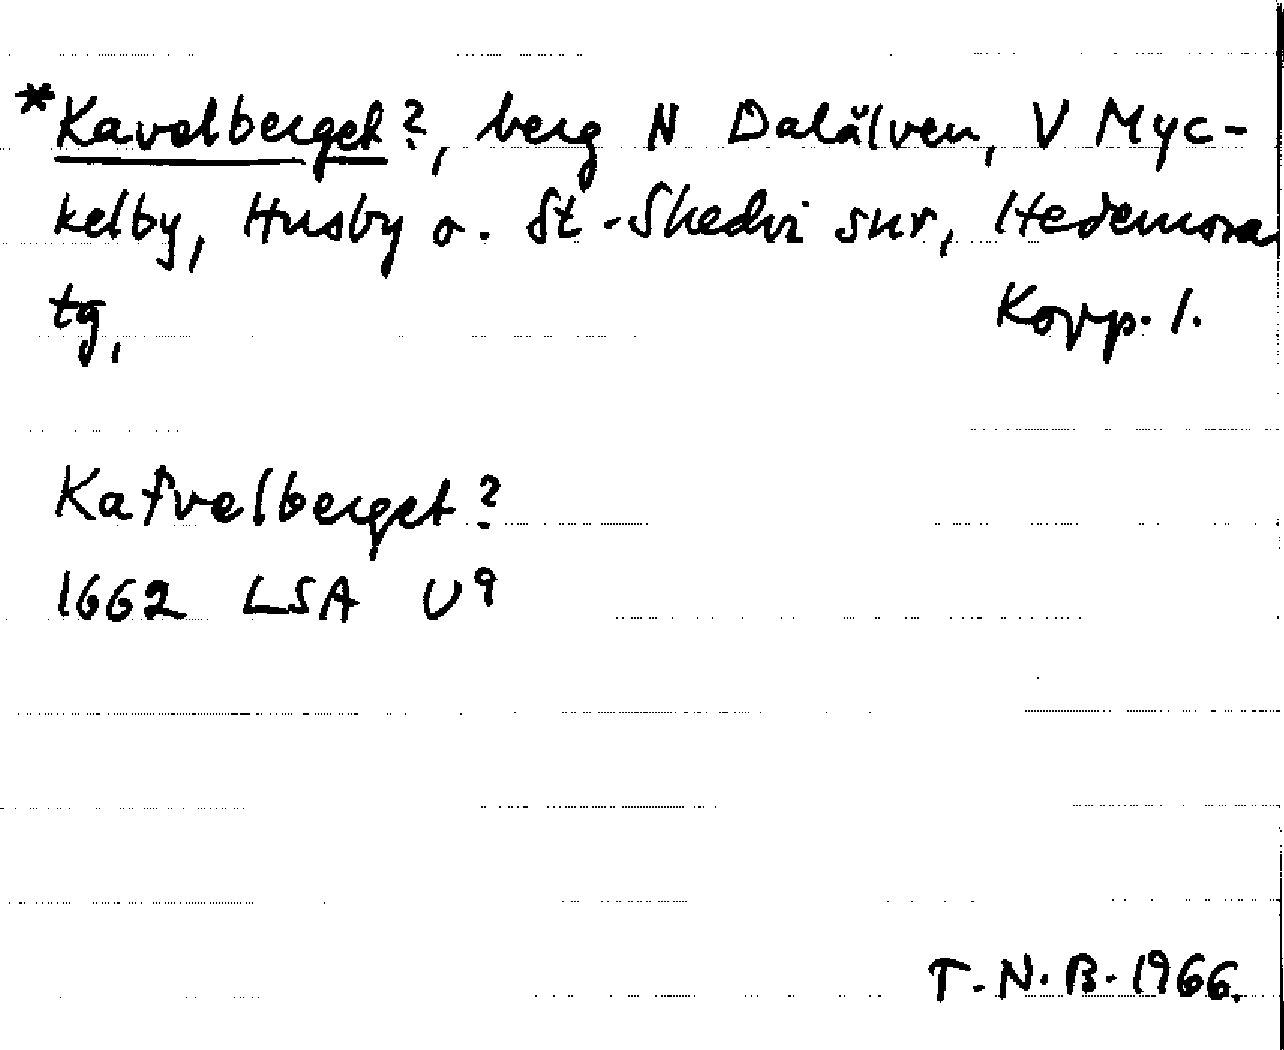 *Kavelberget?, berg N Dalälven, V Myc-
kelby, Husby o. St. Skedvi snr, Hedemora
tg,
Kopp. l.
Kafvelberget?
1662 LSA U9
T.N.B. 1966.